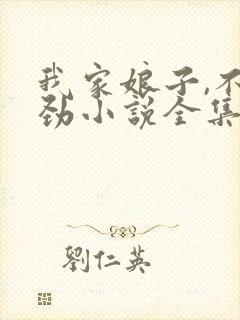 我家娘子,不
劲小说全集
劉仁英